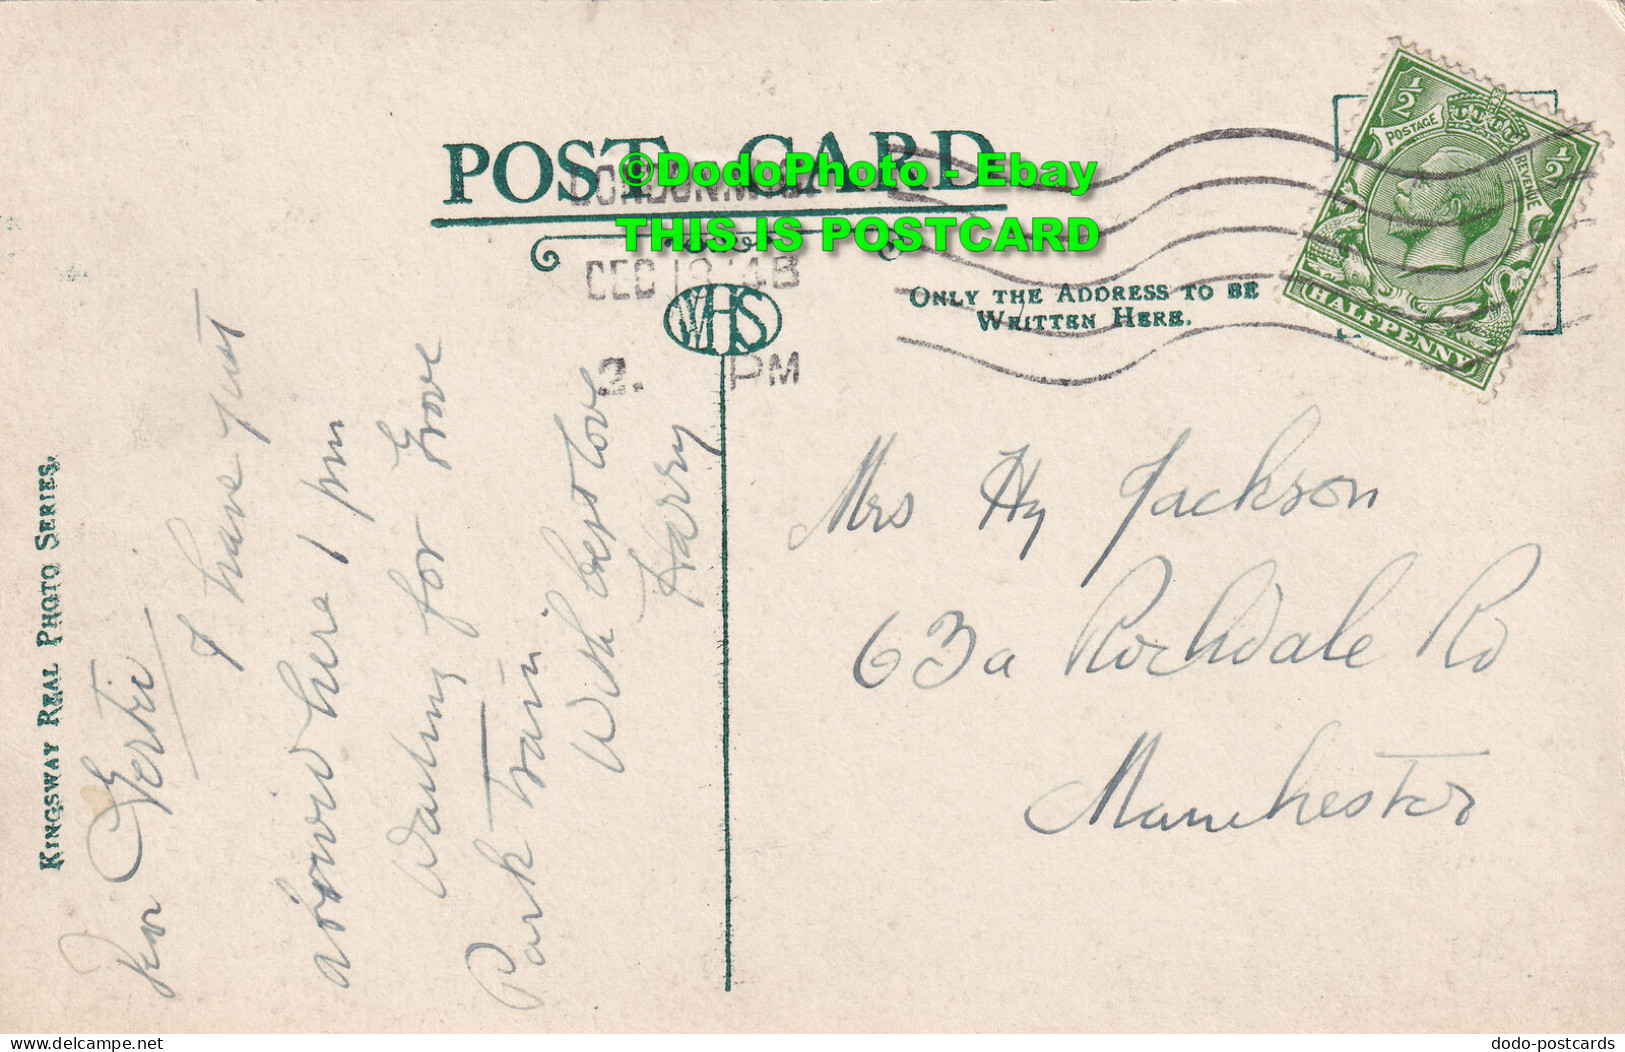 POST CARD
©DodoPhoto - Ebay
THIS IS POSTCARD
DEC
2. PM
WHS
ONLY THE ADDRESS TO BE
WRITTEN HERE.
½ ½
POSTAGE REVENUE
HALFPENNY
KINGSWAY REAL PHOTO SERIES.
Gertie
I have just
arrived here 1 pm
Waiting for Grove
Park train
With best love
Harry
Mrs Hy Jackson
63a Rochdale Rd
Manchester
The Delcampe Community: FG
dodo-postcards